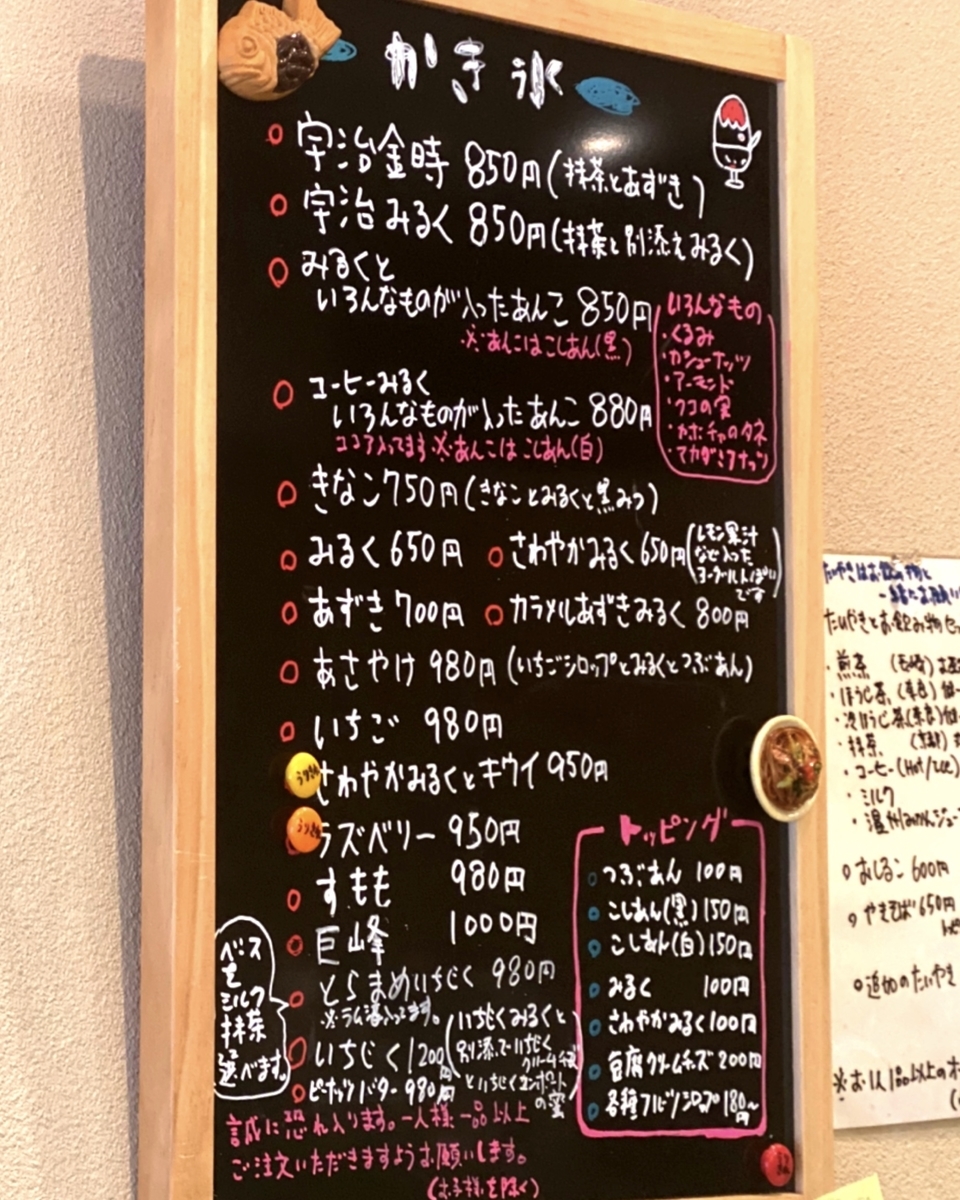 かき氷
宇治金時 850円(抹茶とあずき)
宇治みるく 850円(抹茶と別添えみるく)
みるくと
いろんなものが入ったあんこ 850円
※あんこはこしあん(黒)
いろんなもの
・くるみ
・カシューナッツ
・アーモンド
・クコの実
・カボチャのタネ
・マカダミアナッツ
コーヒーみるく
いろんなものが入ったあんこ 880円
ココア入ってます ※あんこはこしあん(白)
きなこ 750円(きなことみるくと黒みつ)
みるく 650円
さわやかみるく 650円(レモン果汁
など入った
ヨーグルトっぽい
です)
あずき 700円
カラメルあずきみるく 800円
あさやけ 980円(いちごシロップとみるくとつぶあん)
いちご 980円
さわやかみるくとキウイ 950円
ラズベリー 950円
すもも 980円
巨峰 1000円
とらまめいちじく 980円
※ラム酒入ってます。
いちじく 1200円
(いちじくみるくと
別添でいちじく
クリームチーズ
といちじくコンポート
の蜜)
ピーナッツバター 980円
ベース
を
ミルク
抹茶
選べます。
トッピング
つぶあん 100円
こしあん(黒) 150円
こしあん(白) 150円
みるく 100円
さわやかみるく 100円
豆腐クリームチーズ 200円
各種フルーツシロップ 180円〜
誠に恐れ入ります。一人様一品以上
ご注文いただきますようお願いします。
(お子様を除く)
たいやきはお飲み物と
たいやきとお飲み物セッ
・煎茶
・ほうじ茶
・冷ほうじ茶
・抹茶 (京都)
・コーヒー(Hot/Ice)
・ミルク
・温州みかんジュー
おしるこ 600円
やきそば 650円
追加のたいやき
※お1人1品以上のオ